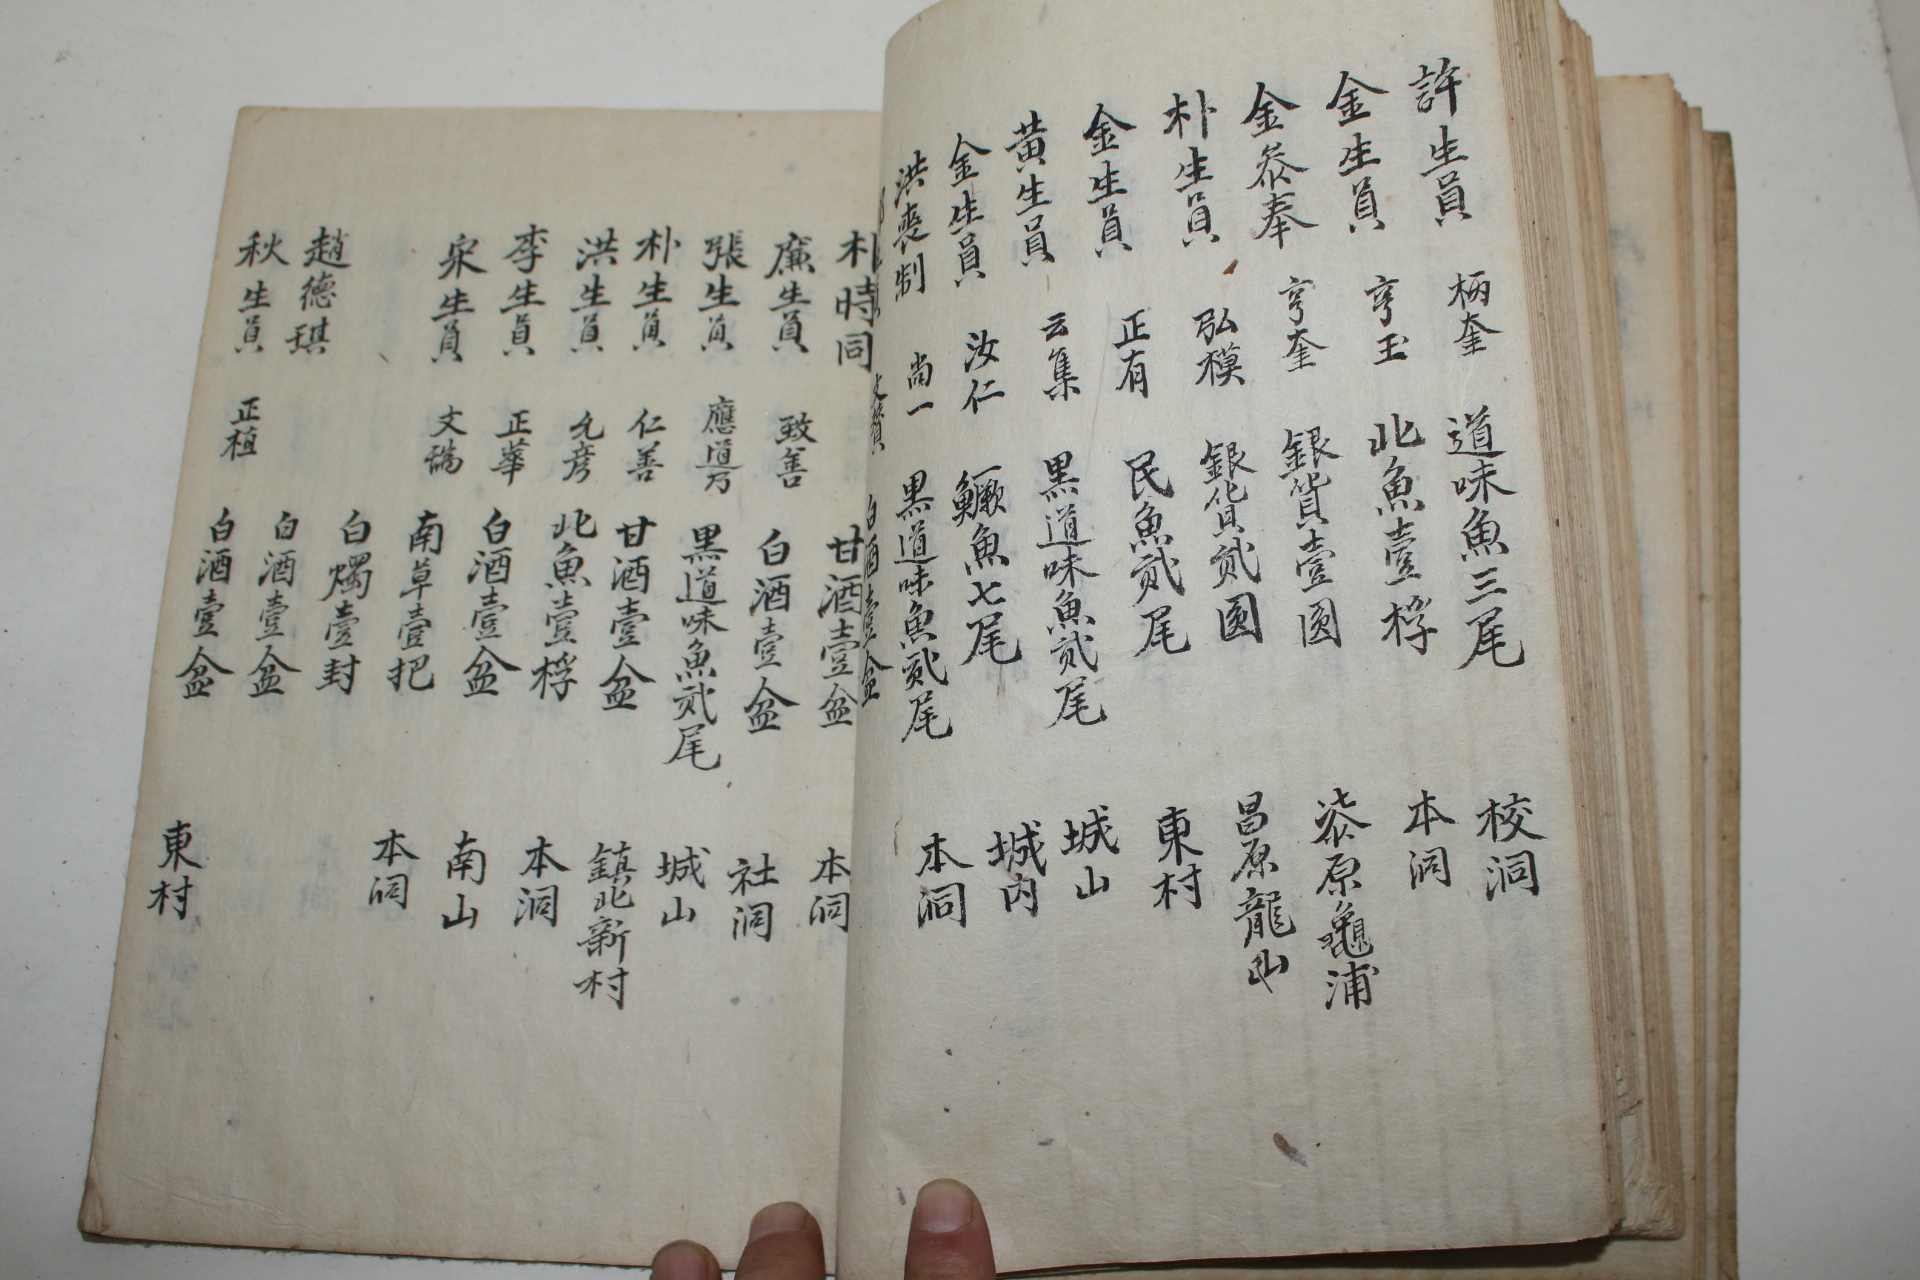 許生員 柄奎 道味魚三尾 校洞
金生員 亨玉 北魚壹桴 本洞
金叅奉 亨奎 銀貨壹圓 柒原龜浦
朴生員 弘模 銀貨貳圓 昌原龍山
金生員 正有 民魚貳尾 東村
黃生員 云集 黑道味魚貳尾 城山
金生員 汝仁 鱖魚七尾 城內
洪喪制 尚一 黑道味魚貳尾 本洞
文贊 白酒壹盆
朴時同 甘酒壹盆 本洞
廉生員 致善 白酒壹盆 社洞
張生員 應道乃 黑道味魚貳尾 城山
朴生員 仁善 甘酒壹盆 鎮北新村
洪生員 允彦 北魚壹桴 本洞
李生員 正華 白酒壹盆 南山
宋生員 文瑞 南草壹把 本洞
白燭壹封
趙德琪 白酒壹盆
秋生員 正植 白酒壹盆 東村